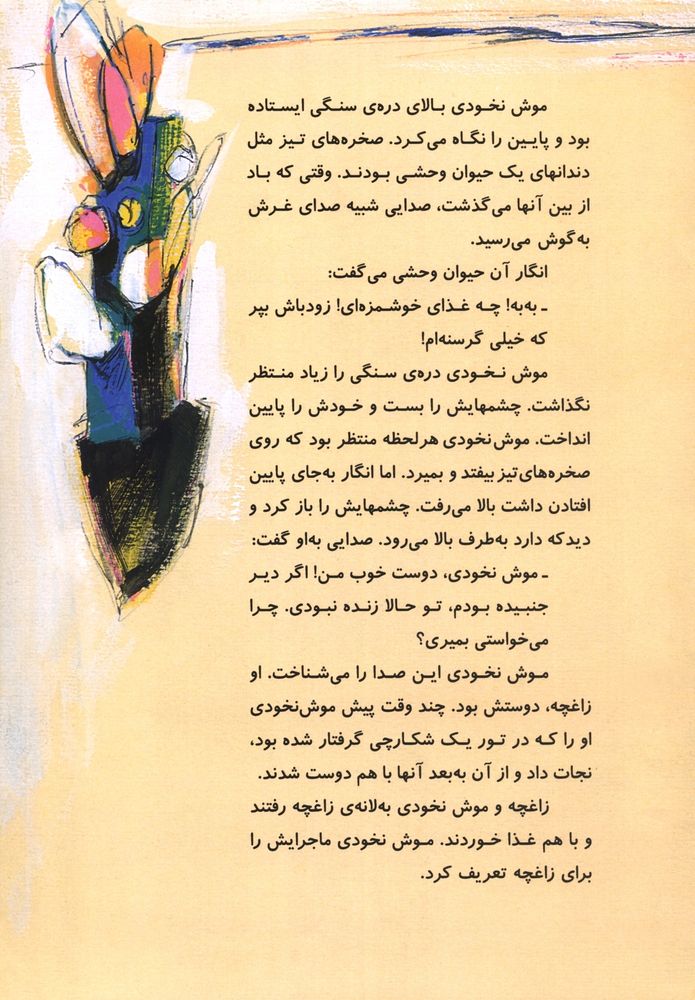 موش نخودی بالای دره‌ی سنگی ایستاده
بود و پایین را نگاه می‌کرد. صخره‌های تیز مثل
دندانهای یک حیوان وحشی بودند. وقتی که باد
از بین آنها می‌گذشت، صدایی شبیه صدای غرش
به‌گوش می‌رسید.
انگار آن حیوان وحشی می‌گفت:
ـ به‌به! چه غذای خوشمزه‌ای! زودباش بپر
که خیلی گرسنه‌ام!
موش نخودی دره‌ی سنگی را زیاد منتظر
نگذاشت. چشمهایش را بست و خودش را پایین
انداخت. موش‌نخودی هرلحظه منتظر بود که روی
صخره‌های‌تیز بیفتد و بمیرد. اما انگار به‌جای پایین
افتادن داشت بالا می‌رفت. چشمهایش را باز کرد و
دیدکه دارد به‌طرف بالا می‌رود. صدایی به‌او گفت:
ـ موش نخودی، دوست خوب من! اگر دیر
جنبیده بودم، تو حالا زنده نبودی. چرا
می‌خواستی بمیری؟
موش نخودی این صدا را می‌شناخت. او
زاغچه، دوستش بود. چند وقت پیش موش‌نخودی
او را که در تور یک شکارچی گرفتار شده بود،
نجات داد و از آن به‌بعد آنها با هم دوست شدند.
زاغچه و موش نخودی به‌لانه‌ی زاغچه رفتند
و با هم غذا خوردند. موش نخودی ماجرایش را
برای زاغچه تعریف کرد.